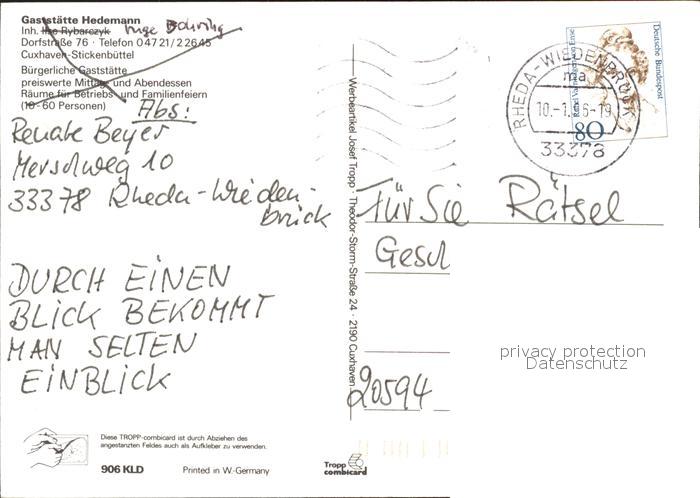 Gaststätte Hedemann
Inh. Ilse Rybarczyk Inge Döhring
Dorfstraße 76 · Telefon 0 47 21 / 2 26 45
Cuxhaven-Stickenbüttel
Bürgerliche Gaststätte
preiswerte Mittag- und Abendessen
Räume für Betriebs- und Familienfeiern
(10 - 60 Personen)
Abs:
Renate Beyer
Merschweg 10
33378 Rheda-Wieden-
brück
DURCH EINEN
BLICK BEKOMMT
MAN SELTEN
EINBLICK
Diese TROPP-combicard ist durch Abziehen des
angestanzten Feldes auch als Aufkleber zu verwenden.
906 KLD Printed in W.-Germany
Werbeartikel Josef Tropp · Theodor-Storm-Straße 24 · 2190 Cuxhaven
Tropp
combicard
RHEDA-WIEDENBRÜCK
ma
33378
Deutsche Bundespost
80
Für Sie Rätsel
Gesch
20594
privacy protection
Datenschutz